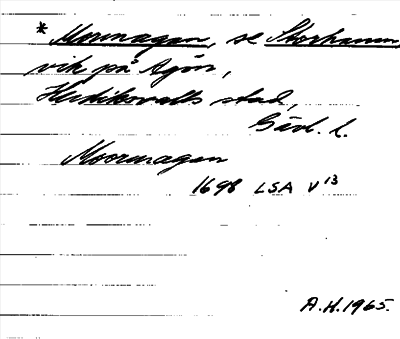 * Mormagan, se Storhamns
vik på Agön,
Hudiksvalls stad,
Gävl. l.
Moormagan
1698 LSA V 13
A.H. 1965.